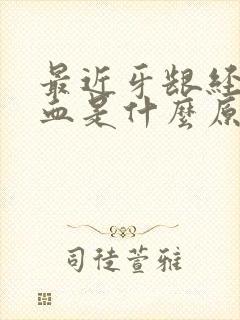 最近牙龈经
血是什麼原
司徒萱雅